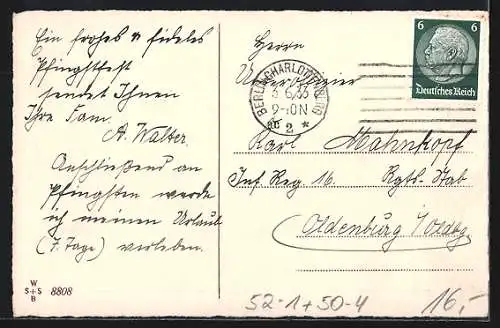 Ein frohes u fideles
Pfingstfest
sendet Ihnen
Ihre Fam.
A. Walter.
Anschließend an
Pfingsten werde
ich meinen Urlaub
(7. Tage) verleben.
W
S+S
B
8808
Herrn
Unteroffizier
BERLIN-CHARLOTTENBURG
3.6.33
9-10N
2
6
6
Deutsches Reich
Karl Mahnkopf
Inf. Reg. 16. Rgts-Stab
Oldenburg i/Oldbg
52-1+50-4
16,-